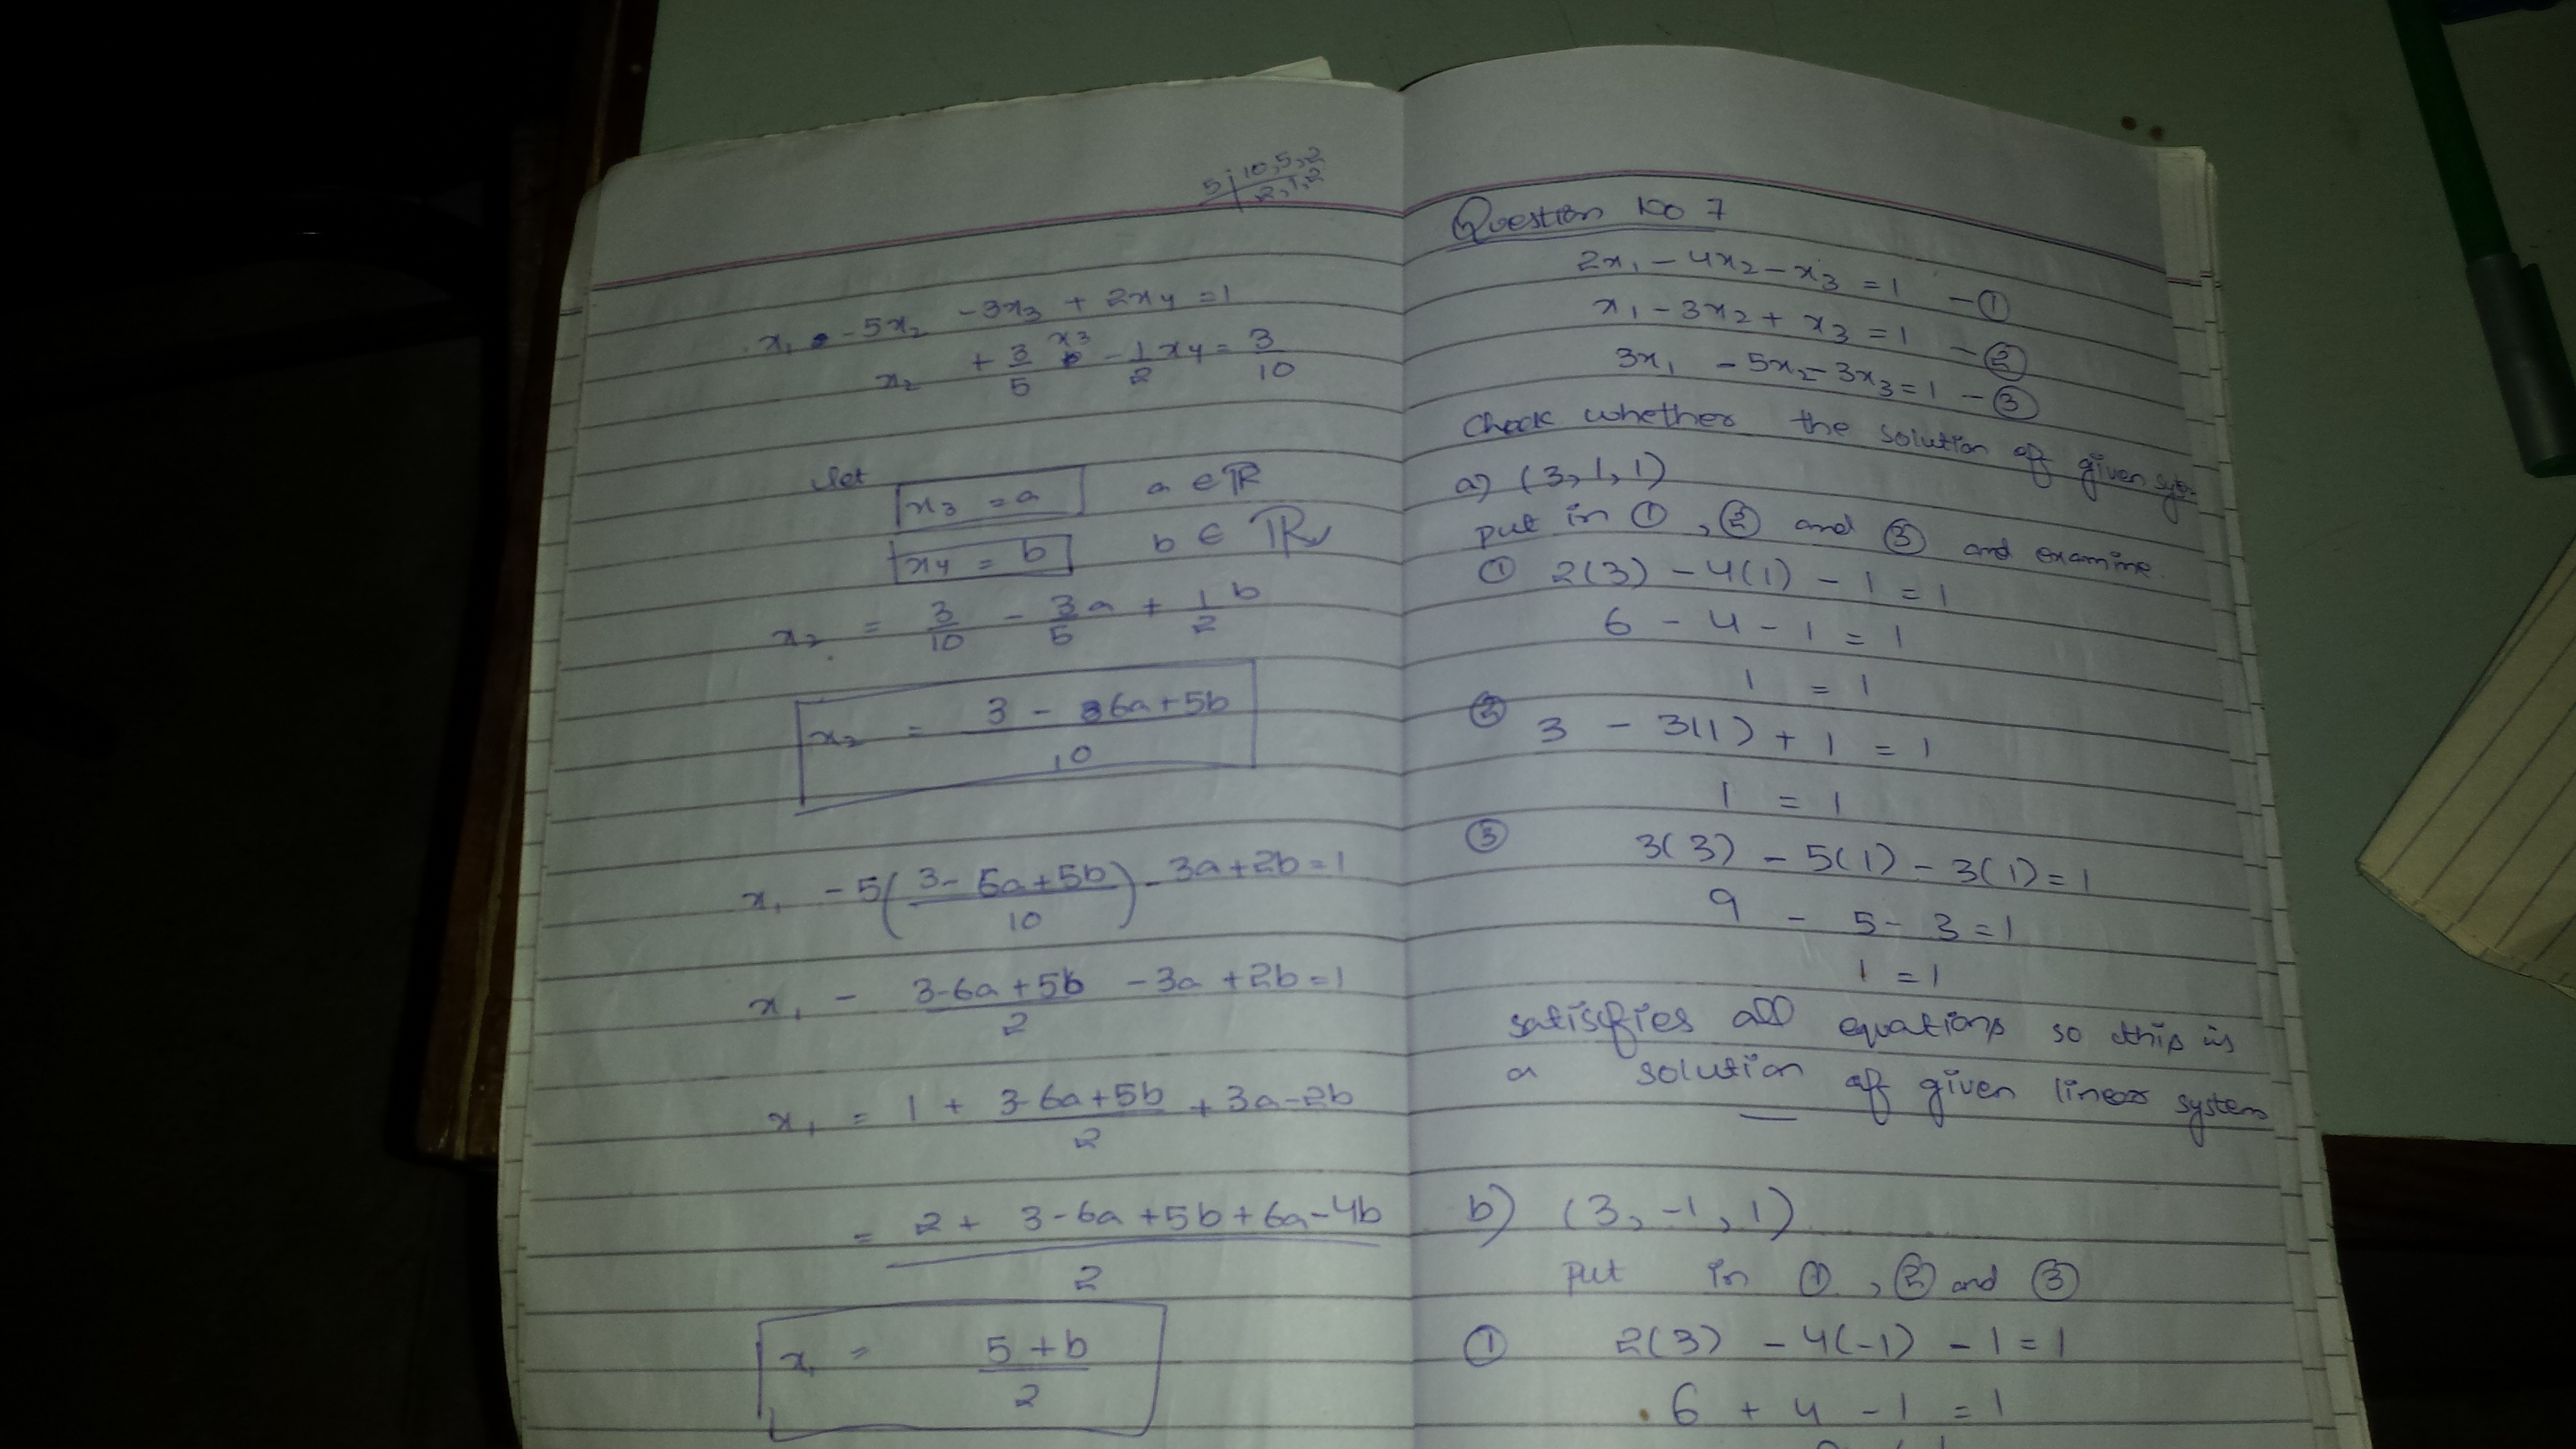 5 | 10, 5, 2
2, 1, 2
x₁ - 5x₂ - 3x₃ + 2x₄ = 1
x₂ + 3/5 x₃ - 1/2 x₄ = 3/10
let x₃ = a a ∈ ℝ
x₄ = b b ∈ ℝ
x₂ = 3/10 - 3/5 a + 1/2 b
x₂ = (3 - 6a + 5b)/10
x₁ - 5((3 - 6a + 5b)/10) - 3a + 2b = 1
x₁ - (3 - 6a + 5b)/2 - 3a + 2b = 1
x₁ = 1 + (3 - 6a + 5b)/2 + 3a - 2b
= (2 + 3 - 6a + 5b + 6a - 4b)/2
x₁ = (5 + b)/2
Question No 7
2x₁ - 4x₂ - x₃ = 1 - ①
x₁ - 3x₂ + x₃ = 1 - ②
3x₁ - 5x₂ - 3x₃ = 1 - ③
Check whether the solution of given sys-
a) (3, 1, 1)
put in ①, ② and ③ and examine.
① 2(3) - 4(1) - 1 = 1
6 - 4 - 1 = 1
1 = 1
② 3 - 3(1) + 1 = 1
1 = 1
③ 3(3) - 5(1) - 3(1) = 1
9 - 5 - 3 = 1
1 = 1
satisfies all equations so this is
a solution of given linear system
b) (3, -1, 1)
put in ①, ② and ③
① 2(3) - 4(-1) - 1 = 1
6 + 4 - 1 = 1